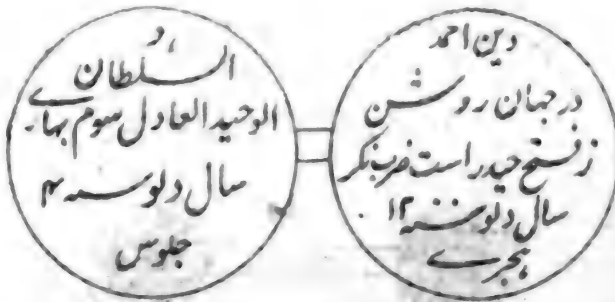 دین احمد
در جهان روشن
ز فتح حیدر است ضرب نگر
سال دلو سنه ۱۲
هجرے
السلطان
الوحید العادل سوم بهارے
سال دلو سنه ۴
جلوس